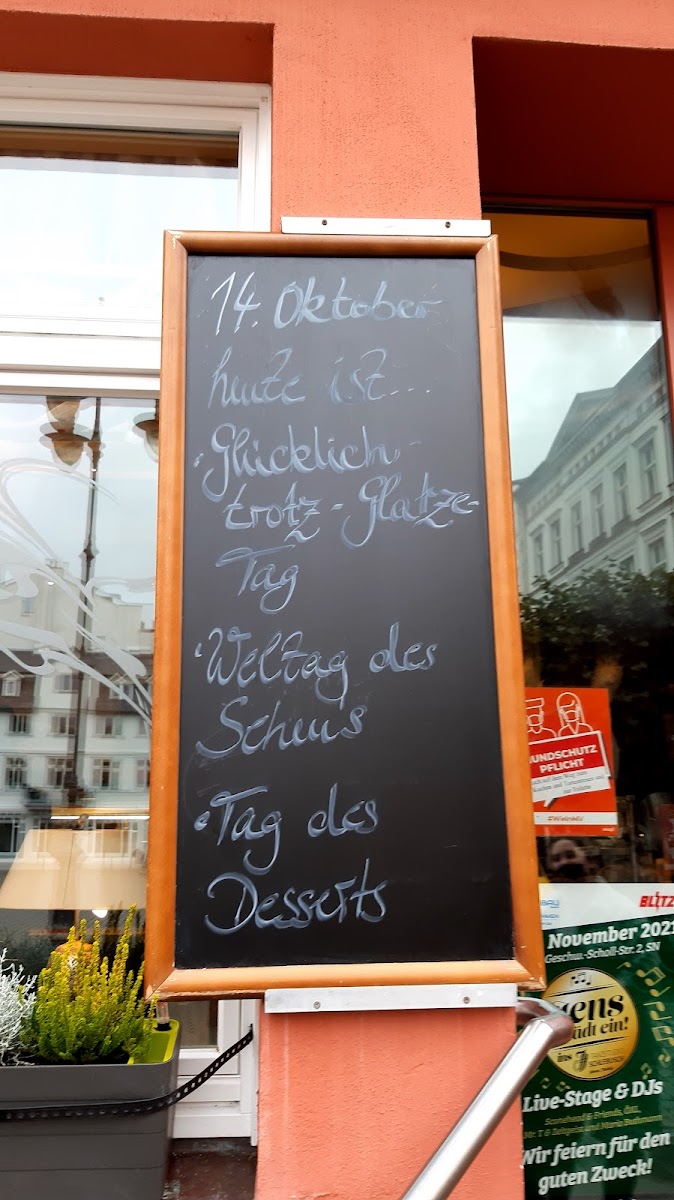 14. Oktober
heute ist...
· Glücklich-
trotz-Glatze-
Tag
· Weltag des
Sehens
· Tag des
Desserts
UNDSCHUTZ
PFLICHT
BLITZ
November 2021
Geschw.-Scholl-Str. 2, SN
Live-Stage & DJs
Wir feiern für den
guten Zweck!